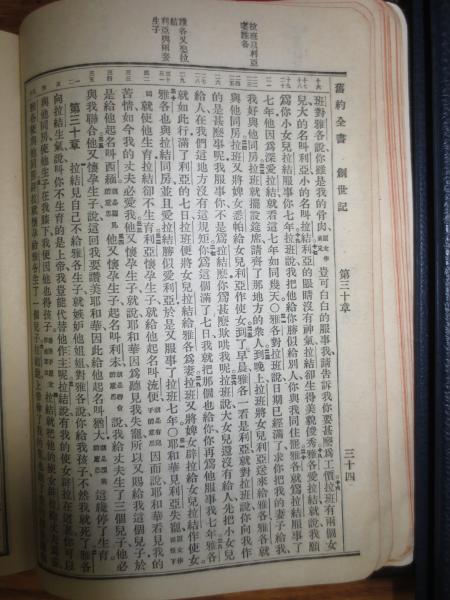 舊約全書 創世記 第三十章 三十四
拉班以利亞
電雅各
雅各又娶拉
結
利亞與兩妾
生子
班對雅各說你雖是我的骨肉原文作弟兄豈可白白的服事我請告訴我你要甚麼爲工價拉班有兩個女
兒大的名叫利亞小的名叫拉結利亞的眼睛沒有神氣拉結卻生得美貌俊秀雅各愛拉結就說我願
爲你小女兒拉結服事你七年拉班說我把他給你勝似給別人你與我同住罷雅各就爲拉結服事了
七年他因爲深愛拉結就看這七年如同幾天○雅各對拉班說日期已經滿了求你把我的妻子給我
我好與他同房拉班就擺設筵席請齊了那地方的衆人到晚上拉班將女兒利亞送來給雅各雅各就
與他同房拉班又將婢女悉帕給女兒利亞作使女到了早晨雅各一看是利亞就對拉班說你向我作
的是甚麼事呢我服事你不是爲拉結麼你爲甚麼欺哄我呢拉班說大女兒還沒有給人先把小女兒
給人在我們這地方沒有這規矩你爲這個滿了七日我就把那個也給你你再爲他服事我七年雅各
就如此行滿了利亞的七日拉班便將女兒拉結給雅各爲妻拉班又將婢女辟拉給女兒拉結作使女
雅各也與拉結同房並且愛拉結勝似愛利亞於是又服事了拉班七年○耶和華見利亞失寵原文作被恨下同
就使他生育拉結卻不生育利亞懷孕生子就給他起名叫流便就是有兒子的意思因而說耶和華看見我的
苦情如今我的丈夫必愛我他又懷孕生子就說耶和華因爲聽見我失寵所以又賜給我這個兒子於
是給他起名叫西緬就是聽見的意思他又懷孕生子起名叫利未就是聯合的意思說我給丈夫生了三個兒子他必
與我聯合他又懷孕生子說這回我要讚美耶和華因此給他起名叫猶大就是讚美的意思這纔停了生育
第三十章 拉結見自己不給雅各生子就嫉妒他姐姐對雅各說你給我孩子不然我就死了雅各
向拉結生氣說叫你不生育的是上帝我豈能代替他作主呢拉結說有我的使女辟拉在這裏你可以
與他同房使他生子在我膝下我便因他也得孩子拉結就把他的使女辟拉給丈夫爲妾